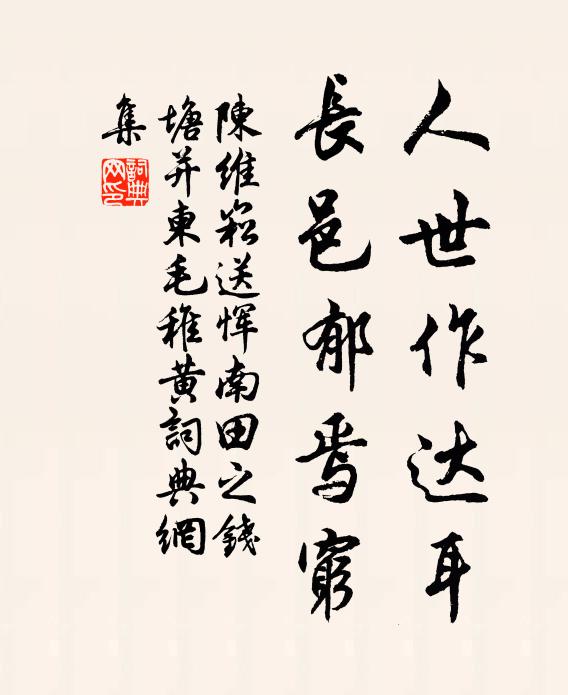 人世作达耳
長邑郁焉窮
陳維崧送惲南田之錢
塘并柬毛稚黄詞典網
集
詞典網印